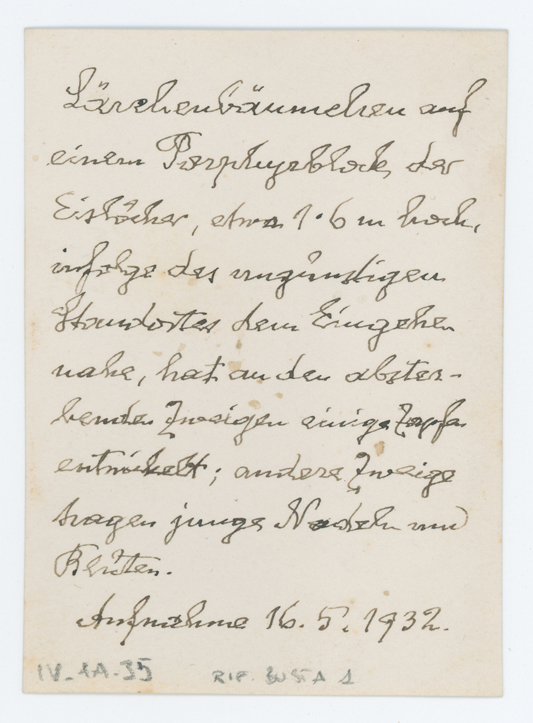 Lärchenbäumchen auf
einem Porphyrblock der
Eislöcher, etwa 1·6 m hoch,
infolge des ungünstigen
Standortes dem Eingehen
nahe, hat an den abster-
benden Zweigen einige Zapfen
entwickelt; andere Zweige
tragen junge Nadeln und
Blüten.
Aufnahme 16. 5. 1932.
IV-1A-35 RIF. BUSTA 1